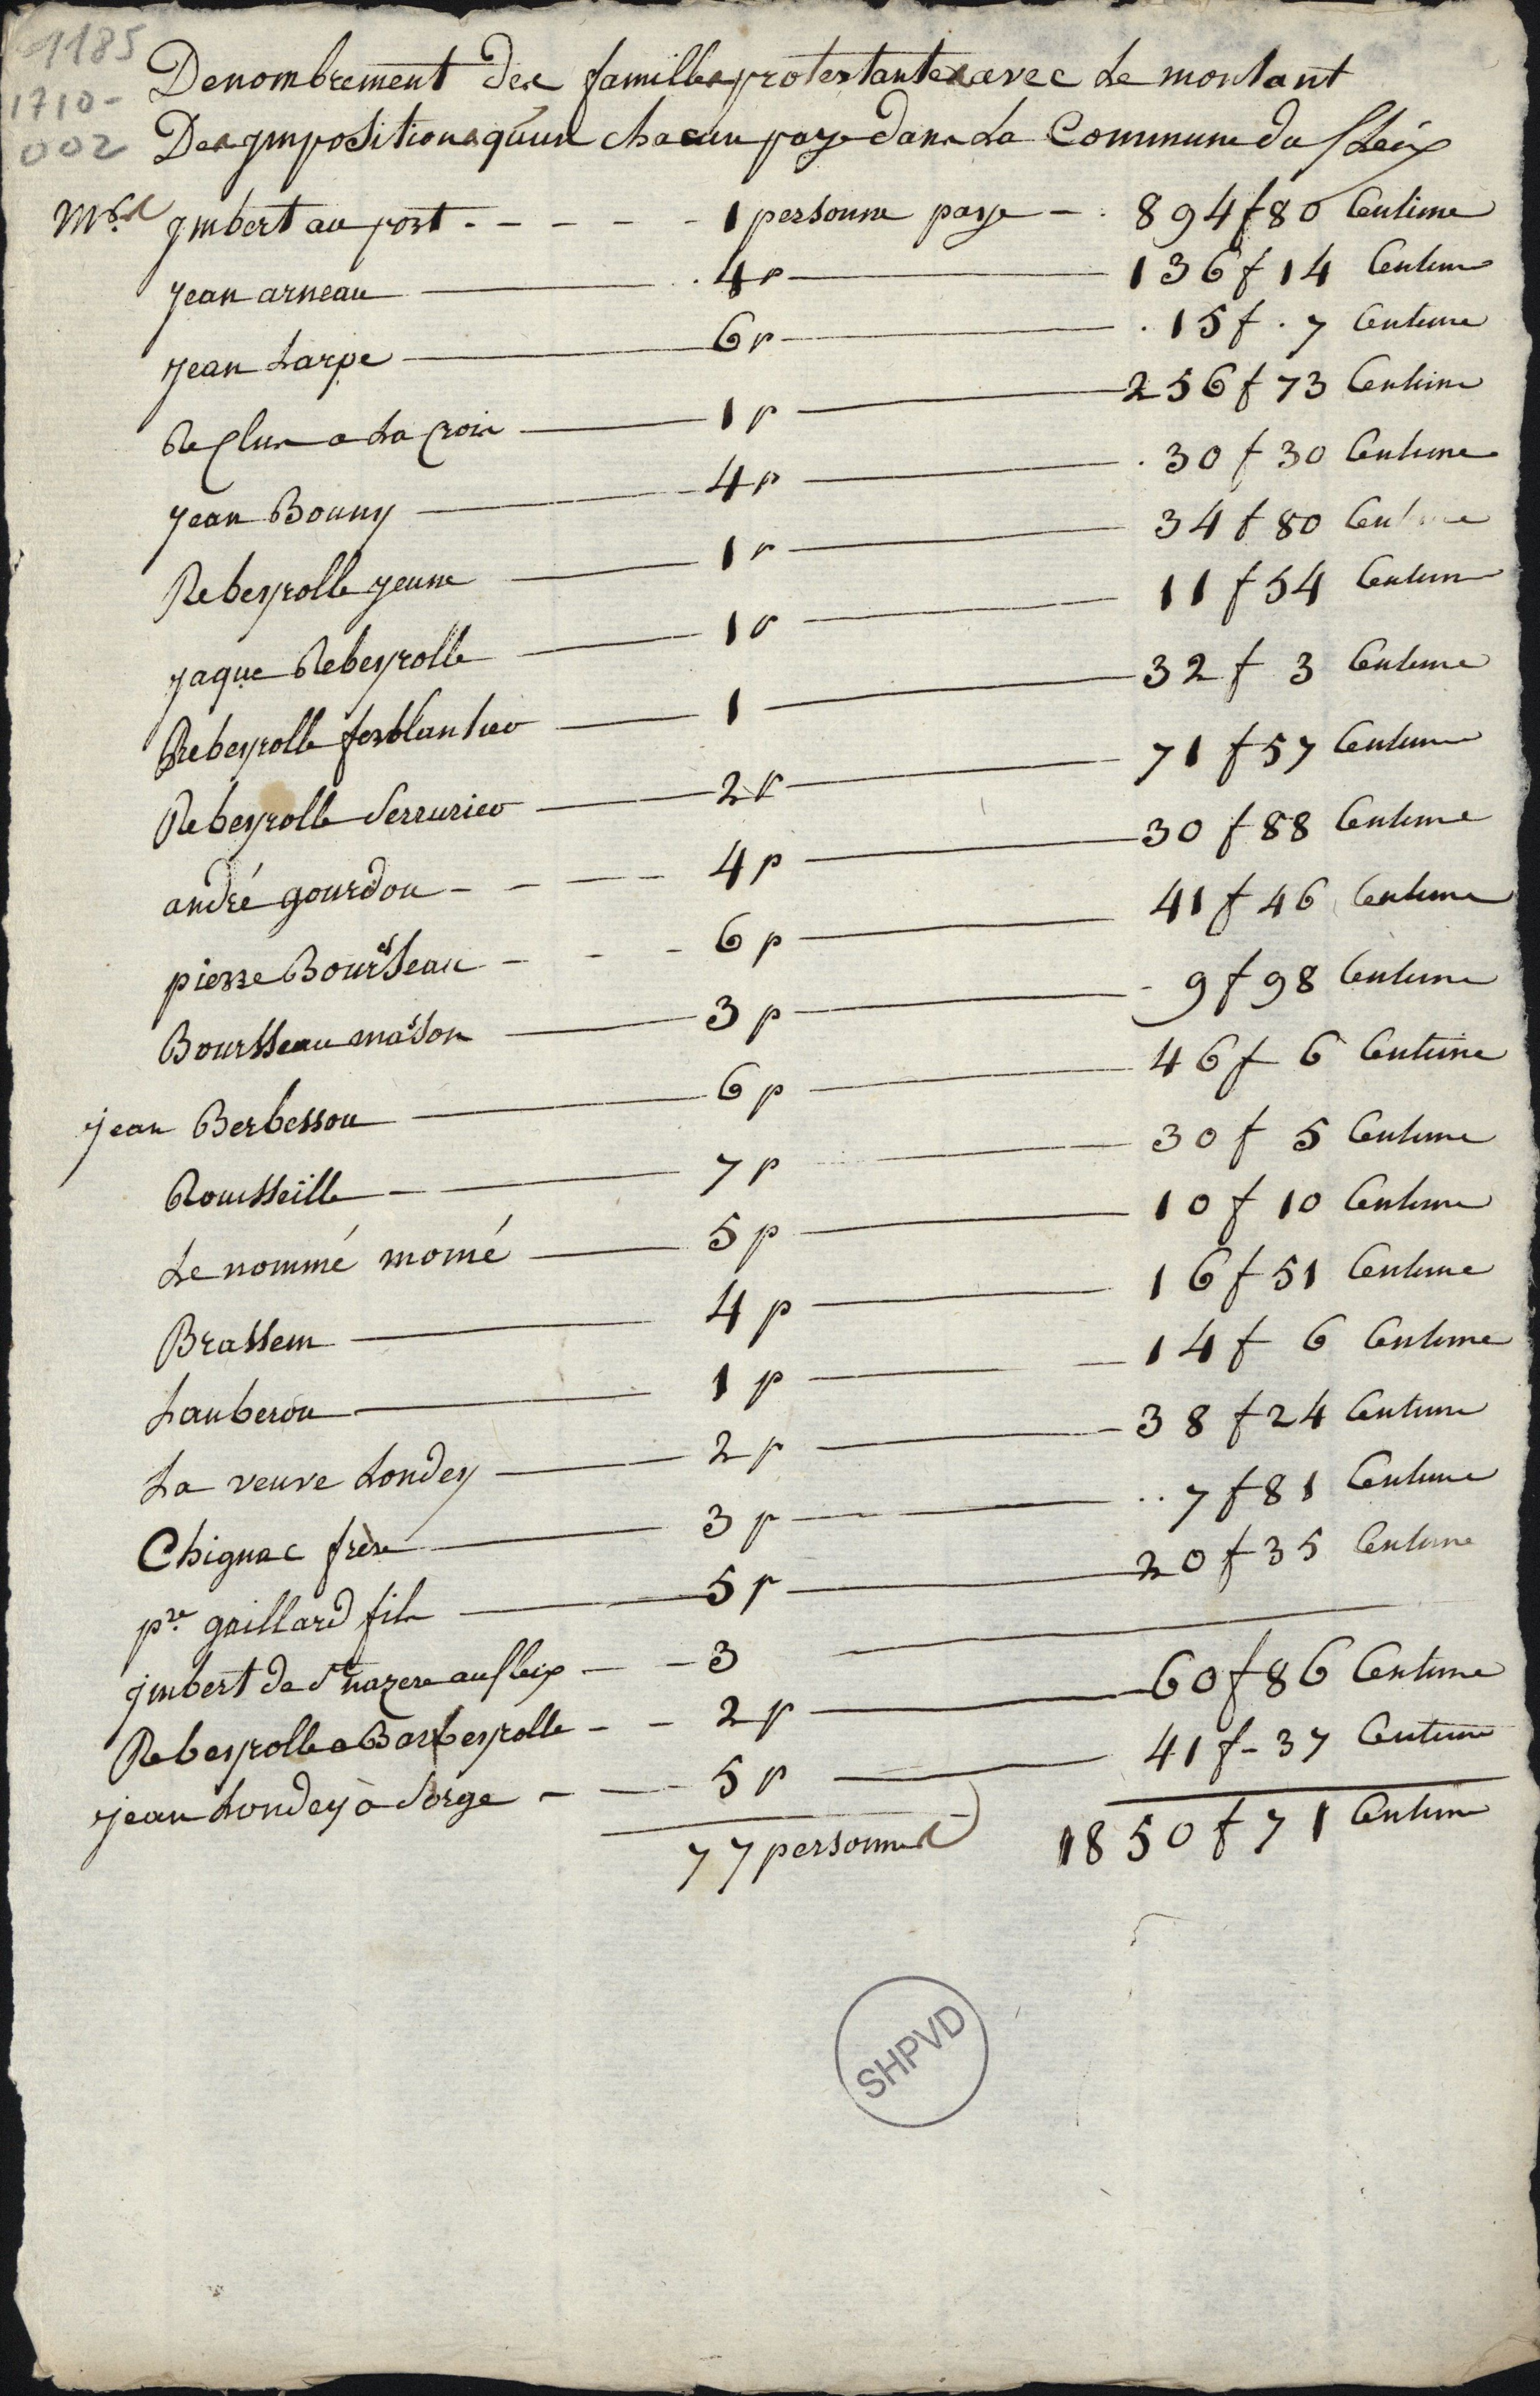 1185
1710-
002
Denombrement des familles protestantes avec Le montant
Des ympositions qu'un chacun paye dans La Commune du fleix
Mrs ymbert au port - - - - - 1 personne paye - . 894 f 80 Centime
jean arneau — 4 p — 136 f 14 Centime
jean Larpe — 6 p — . 15 f . 7 Centime
Reclus a La Croix — 1 p — 256 f 73 Centime
jean Bouny — 4 p — . 30 f 30 Centime
Rebeyrolle jeune — 1 p — 34 f 80 Centime
jaque Rebeyrolle — 1 p — 11 f 54 Centime
Rebeyrolle ferblantier — 1 — 32 f 3 Centime
Rebeyrolle Serrurier — 2 p — 71 f 57 Centime
andré gourdou - - - - 4 p — 30 f 88 Centime
pierre Bourseau - - - 6 p — 41 f 46 Centime
Boursseau masson — 3 p — - 9 f 98 Centime
jean Berbessou — 6 p — 46 f 6 Centime
Rousseille - — 7 p — 30 f 5 Centime
Le nommé momé — 5 p — 10 f 10 Centime
Brassem — 4 p — 16 f 51 Centime
Lauberou — 1 p — 14 f 6 Centime
La veuve Londey — 2 p — 38 f 24 Centime
Chignac frère — 3 p — .. 7 f 81 Centime
pre gaillard fils — 5 p — 20 f 35 Centime
ymbert de st nazere au fleix - - 3 —
Rebeyrolle a Barbeyrolle - - 2 p — 60 f 86 Centime
jean Londey à Sorge - - 5 p — 41 f - 37 Centime
77 personnes 1850 f 71 Centime
SHPVD